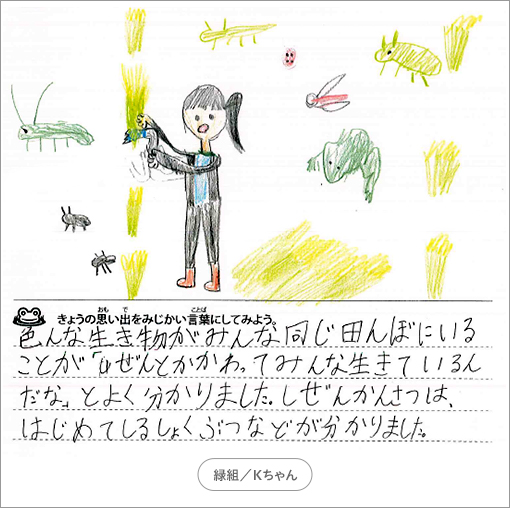 きょうの思い出をみじかい言葉にしてみよう。
色んな生き物がみんな同じ田んぼにいる
ことが「しぜんとかかわってみんな生きているん
だな」とよく分かりました。しぜんかんさつは、
はじめてしるしょくぶつなどが分かりました。
緑組／Kちゃん